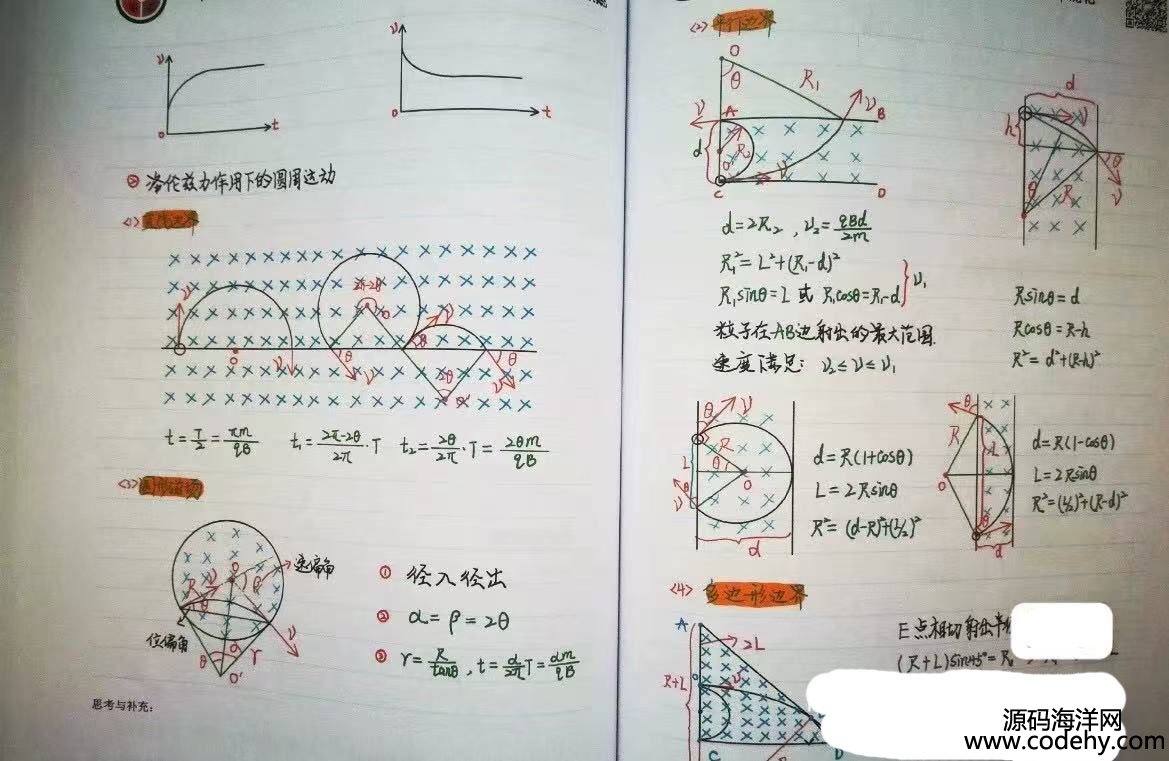 ② 洛伦兹力作用下的圆周运动
<1> 直线边界
t=T/2=πm/qB  t₁=(2π-2θ)/2π·T  t₂=2θ/2π·T=2θm/qB
<3> 圆形磁场
速偏角
位偏角
① 径入径出
② α=β=2θ
③ r=R/tanθ, t=α/2π T=αm/qB
思考与补充:
<2> 平行边界
d=2R₂, v₂=qBd/2m
R₁²=L²+(R₁-d)²
R₁sinθ=L 或 R₁cosθ=R₁-d } v₁
粒子在AB边射出的最大范围.
速度满足: v₂≤v≤v₁
Rsinθ=d
Rcosθ=R-h
R²=d²+(R-h)²
d=R(1+cosθ)
L=2Rsinθ
R²=(d-R)²+(L/2)²
d=R(1-cosθ)
L=2Rsinθ
R²=(L/2)²+(R-d)²
<4> 多边形边界
E点相切射出
(R+L)sin45°=R
源码海洋网
www.codehy.com